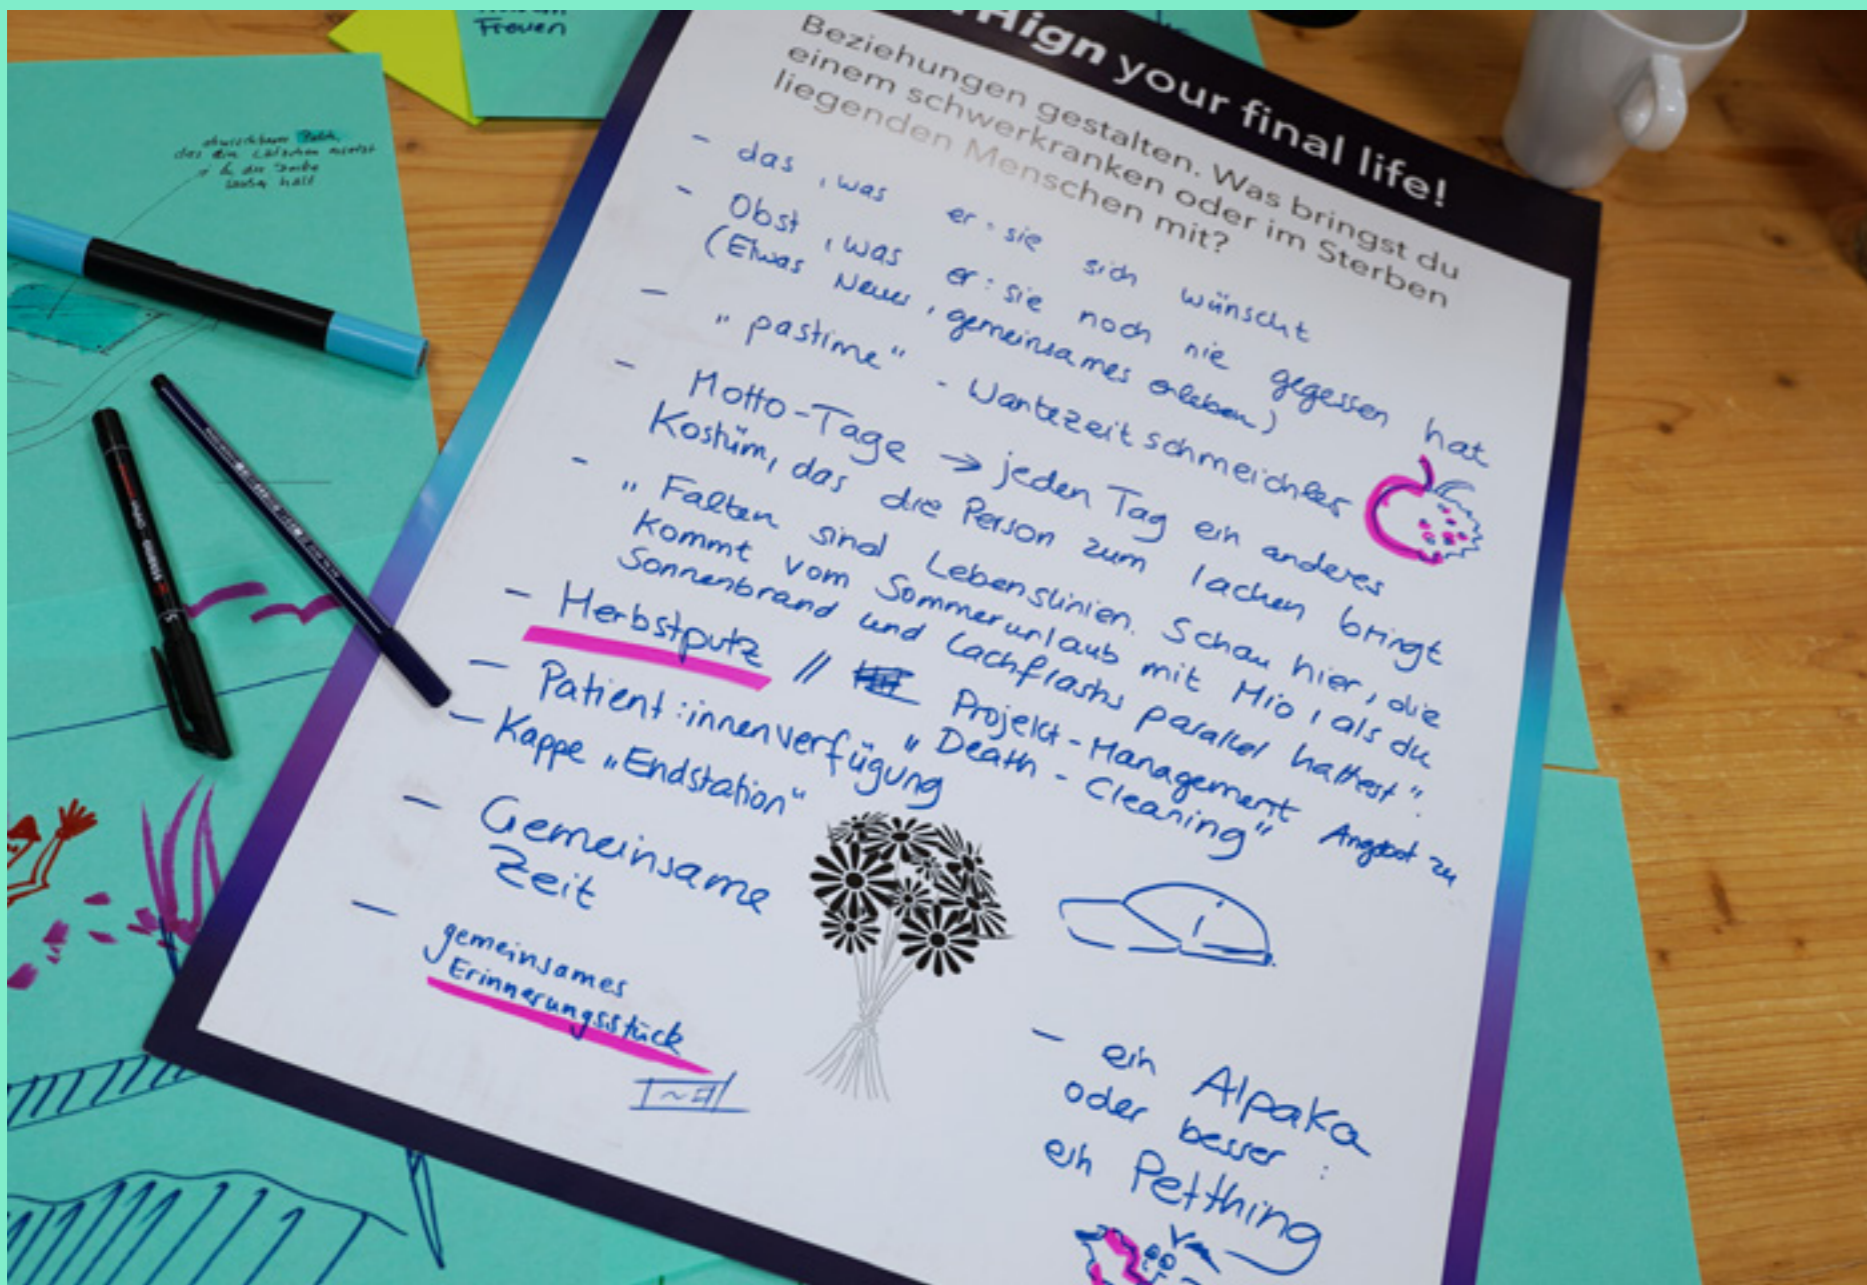 Frauen
your final life!
Beziehungen gestalten. Was bringst du
einem schwerkranken oder im Sterben
liegenden Menschen mit?
- das, was er:sie sich wünscht
- Obst, was er:sie noch nie gegessen hat
(Etwas Neues, gemeinsames erleben)
- "pastime" - Wartezeitschmeichler
- Motto-Tage → jeden Tag ein anderes
Kostüm, das die Person zum lachen bringt
- "Falten sind Lebenslinien. Schau hier, die
kommt vom Sommerurlaub mit Mio, als du
Sonnenbrand und Lachflashs parallel hattest".
- Herbstputz // Projekt-Management Angebot zu
"Death-Cleaning"
- Patient:innenverfügung
- Kappe "Endstation"
- Gemeinsame
Zeit
- gemeinsames
Erinnerungsstück
- ein Alpaka
oder besser:
ein Petthing